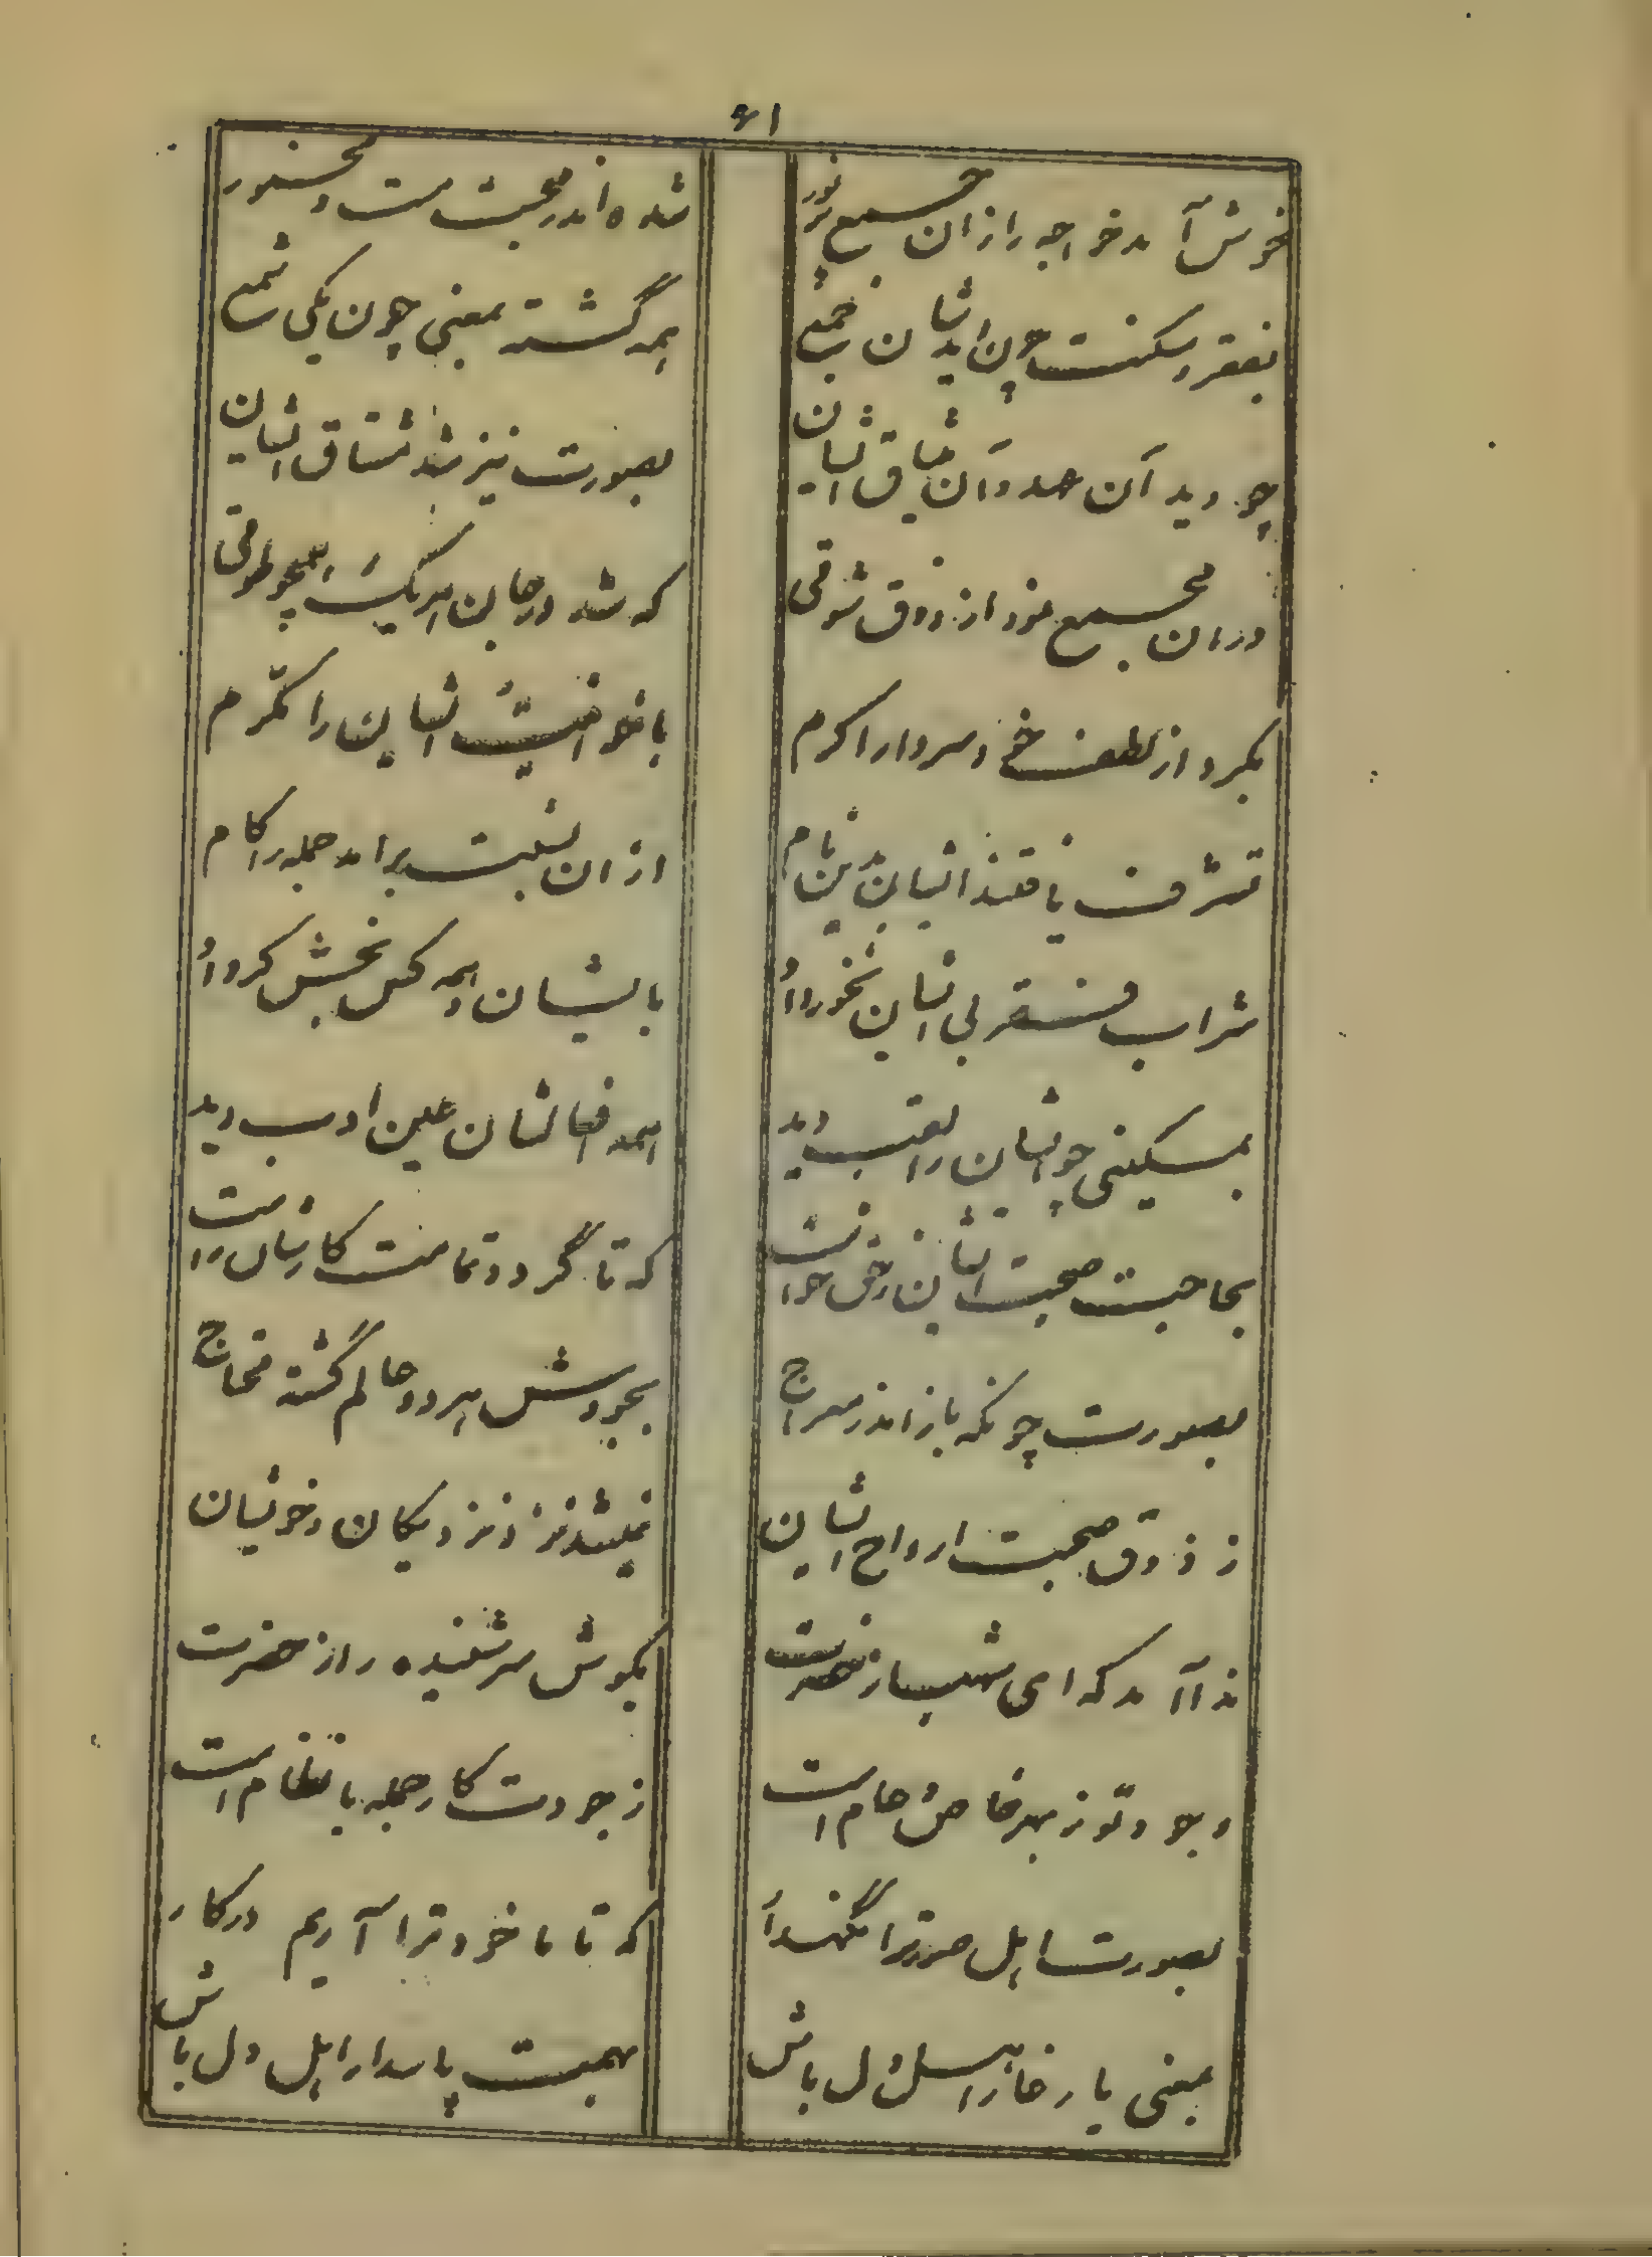 ۶۱
خوش آمد خواجه را زان جمع پر نور
شده اندر محبت مست و مخمور
بفقر و مسکنت چون دید ایشان جمع
همه گشته بمعنی چون یکی شمع
چو دید آن عهد و آن میثاق ایشان
بصورت نیز شد مشتاق ایشان
در آن مجمع نمود از ذوق شوقی
که شد در جان هر یک همچو طوقی
بکرد از لطف خود سردار اکرم
باخوانیت ایشان را مکرم
تشرف یافتند ایشان بدین نام
از ان نسبت برآمد جمله را کام
شراب فقر بی ایشان نخورد او
بایشان همه کس بخش کرد او
بمسکینی چو ایشان را لقب دید
همه افعالشان عین ادب دید
بحاجت صحبت ایشان ز حق خواست
که تا گردد تمامت کارشان راست
بصورت چونکه باز آمد ز معراج
بجودش هر دو عالم گشته محتاج
ز ذوق صحبت ارواح ایشان
نمیشد نزد نزدیکان و خویشان
ندا آمد که ای شهباز حضرت
بگوش سر شنیده راز حضرت
وجود تو ز بهر خاص و عام است
ز جودت کار جمله با نظام است
بصورت اهل صورت را نگهدار
که تا ما خود ترا آریم در کار
بمعنی یار غار اهل دل باش
بهمت پاسدار اهل دل باش